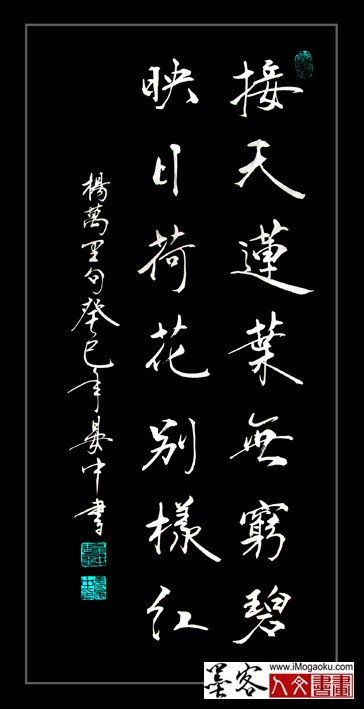 接天蓮葉無窮碧
映日荷花別樣红
楊萬里句癸巳年晏中書
www.iMogaoku.com
墨客
人文書畫